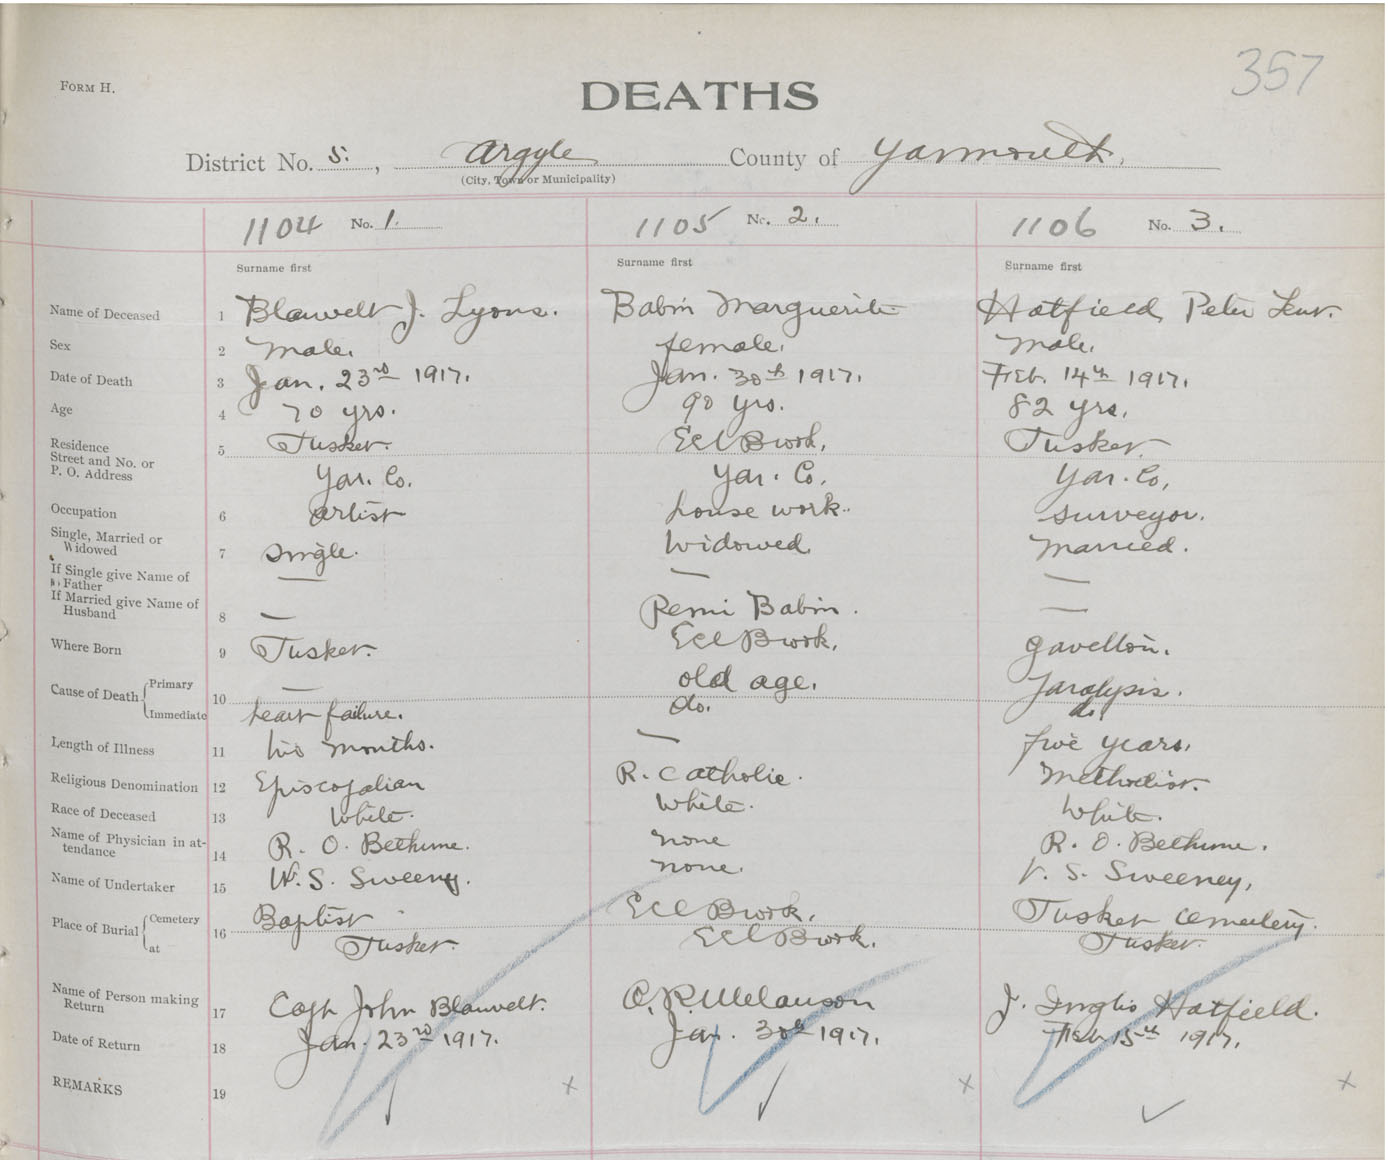 357
FORM H.
DEATHS
District No. 5. , Argyle County of Yarmouth.
(City, Town or Municipality)
1104 No. 1. 1105 No. 2. 1106 No. 3.
Surname first Surname first Surname first
Name of Deceased 1 Blauvelt J. Lyons. Babin Marguerite Hatfield Peter Lent.
Sex 2 Male. female. Male.
Date of Death 3 Jan. 23rd 1917. Jan. 30th 1917. Feb. 14th 1917.
Age 4 70 yrs. 90 yrs. 82 yrs.
Residence Street and No. or P. O. Address 5 Tusket. Eel Brook. Tusket.
Yar. Co. Yar. Co. Yar. Co.
Occupation 6 artist house work. surveyor.
Single, Married or Widowed 7 single. Widowed. Married.
If Single give Name of Father — — —
If Married give Name of Husband 8 — Remi Babin. —
Where Born 9 Tusket. Eel Brook. Gavelton.
Cause of Death Primary 10 — old age. Paralysis.
Immediate heart failure. do. do.
Length of Illness 11 two months. — five years.
Religious Denomination 12 Episcopalian R. Catholic. Methodist.
Race of Deceased 13 White. White. White.
Name of Physician in attendance 14 R. O. Bethune. none R. O. Bethune.
Name of Undertaker 15 W. S. Sweeny. none. V. S. Sweeney,
Place of Burial Cemetery 16 Baptist Eel Brook. Tusket Cemetery.
at Tusket. Eel Brook. Tusket.
Name of Person making Return 17 Capt John Blauvelt. A. R. Melanson J. Inglis Hatfield.
Date of Return 18 Jan. 23rd 1917. Jan. 30th 1917. Feb 15th 1917.
REMARKS 19 x x x